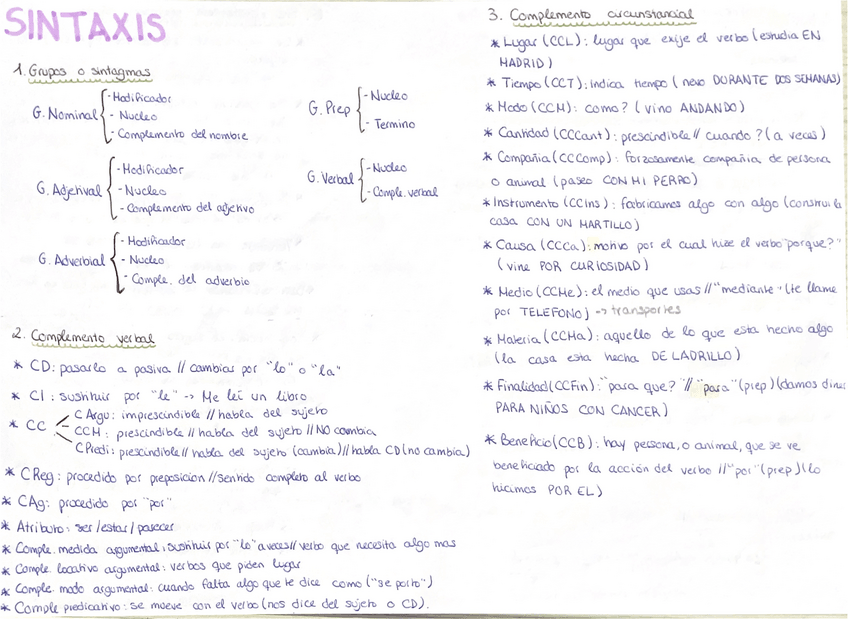 SINTAXIS
1. Grupos o sintagmas
G. Nominal
- Modificador
- Nucleo
- Complemento del nombre
G. Prep
- Nucleo
- Termino
G. Adjetival
- Modificador
- Nucleo
- Complemento del adjetivo
G. Verbal
- Nucleo
- Comple. verbal
G. Adverbial
- Modificador
- Nucleo
- Comple. del adverbio
2. Complemento verbal
* CD: pasarlo a pasiva // cambiar por "lo" o "la"
* CI: sustituir por "le" -> Me leí un libro
* CC
C Argu: imprescindible // habla del sujeto
CCM: prescindible // habla del sujeto // NO cambia
C Predi: prescindible // habla del sujeto (cambia) // habla CD (no cambia)
* CReg: procedido por preposicion // sentido completo al verbo
* CAg: procedido por "por"
* Atributo: ser/estar/parecer
* Comple. medida argumental: sustituir por "lo" a veces // verbo que necesita algo mas
* Comple. locativo argumental: verbos que piden lugar
* Comple. modo argumental: cuando falta algo que te dice como ("se porto")
* Comple predicativo: se mueve con el verbo (nos dice del sujeto o CD).
3. Complemento circunstancial
* Lugar (CCL): lugar que exije el verbo (estudia EN
MADRID)
* Tiempo (CCT): indica tiempo (nevo DURANTE DOS SEMANAS)
* Modo (CCM): como? (vino ANDANDO)
* Cantidad (CCCant): prescindible // cuando? (a veces)
* Compañia (CCComp): forzosamente compañia de persona
o animal (paseo CON MI PERRO)
* Instrumento (CCIns): fabricamos algo con algo (construi la
casa CON UN MARTILLO)
* Causa (CCCa): motivo por el cual hize el verbo "porque?"
(vine POR CURIOSIDAD)
* Medio (CCMe): el medio que usas // "mediante" (te llame
por TELEFONO) -> transportes
* Materia (CCMa): aquello de lo que esta hecho algo
(la casa esta hecha DE LADRILLO)
* Finalidad (CCFin): "para que?" // "para" (prep) (damos diner
PARA NIÑOS CON CANCER)
* Beneficio (CCB): hay persona, o animal, que se ve
beneficiado por la acción del verbo // "por" (prep) (lo
hicimos POR EL)